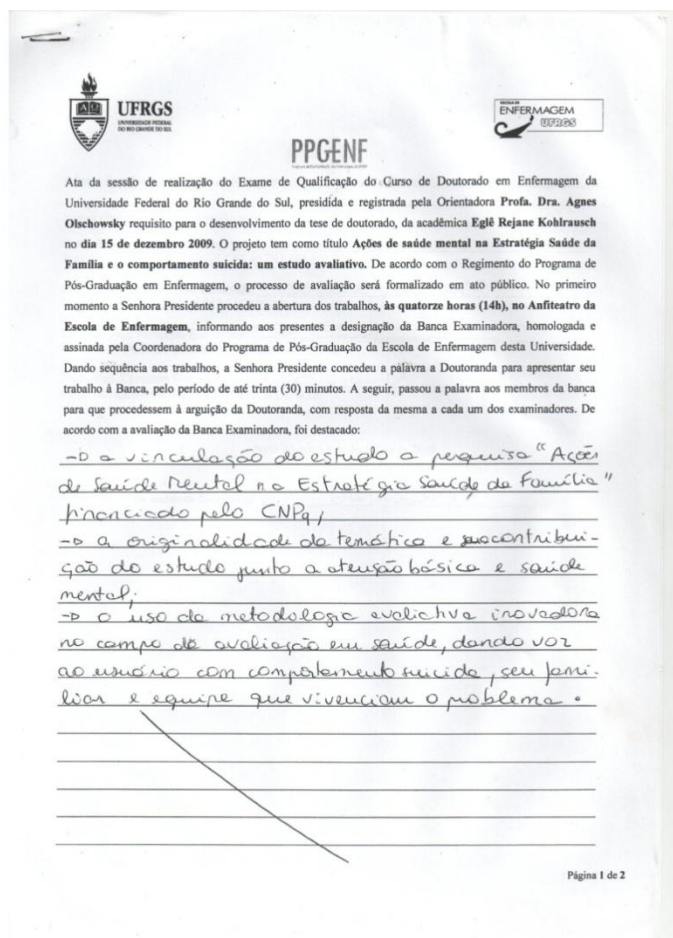 UFRGS
UNIVERSIDADE FEDERAL
DO RIO GRANDE DO SUL
ESCOLA DE
ENFERMAGEM
UFRGS
PPGENF
Ata da sessão de realização do Exame de Qualificação do Curso de Doutorado em Enfermagem da
Universidade Federal do Rio Grande do Sul, presidida e registrada pela Orientadora Profa. Dra. Agnes
Olschowsky requisito para o desenvolvimento da tese de doutorado, da acadêmica Eglê Rejane Kohlrausch
no dia 15 de dezembro 2009. O projeto tem como título Ações de saúde mental na Estratégia Saúde da
Família e o comportamento suicida: um estudo avaliativo. De acordo com o Regimento do Programa de
Pós-Graduação em Enfermagem, o processo de avaliação será formalizado em ato público. No primeiro
momento a Senhora Presidente procedeu a abertura dos trabalhos, às quatorze horas (14h), no Anfiteatro da
Escola de Enfermagem, informando aos presentes a designação da Banca Examinadora, homologada e
assinada pela Coordenadora do Programa de Pós-Graduação da Escola de Enfermagem desta Universidade.
Dando sequência aos trabalhos, a Senhora Presidente concedeu a palavra a Doutoranda para apresentar seu
trabalho à Banca, pelo período de até trinta (30) minutos. A seguir, passou a palavra aos membros da banca
para que procedessem à arguição da Doutoranda, com resposta da mesma a cada um dos examinadores. De
acordo com a avaliação da Banca Examinadora, foi destacado:
→ a vinculação do estudo a pesquisa "Ações
de Saúde Mental na Estratégia Saúde da Família"
financiado pelo CNPq;
→ a originalidade da temática e sua contribui-
ção do estudo junto a atenção básica e saúde
mental;
→ o uso da metodologia avaliativa inovadora
no campo da avaliação em saúde, dando voz
ao usuário com comportamento suicida, seu fami-
liar e equipe que vivenciam o problema.
Página 1 de 2